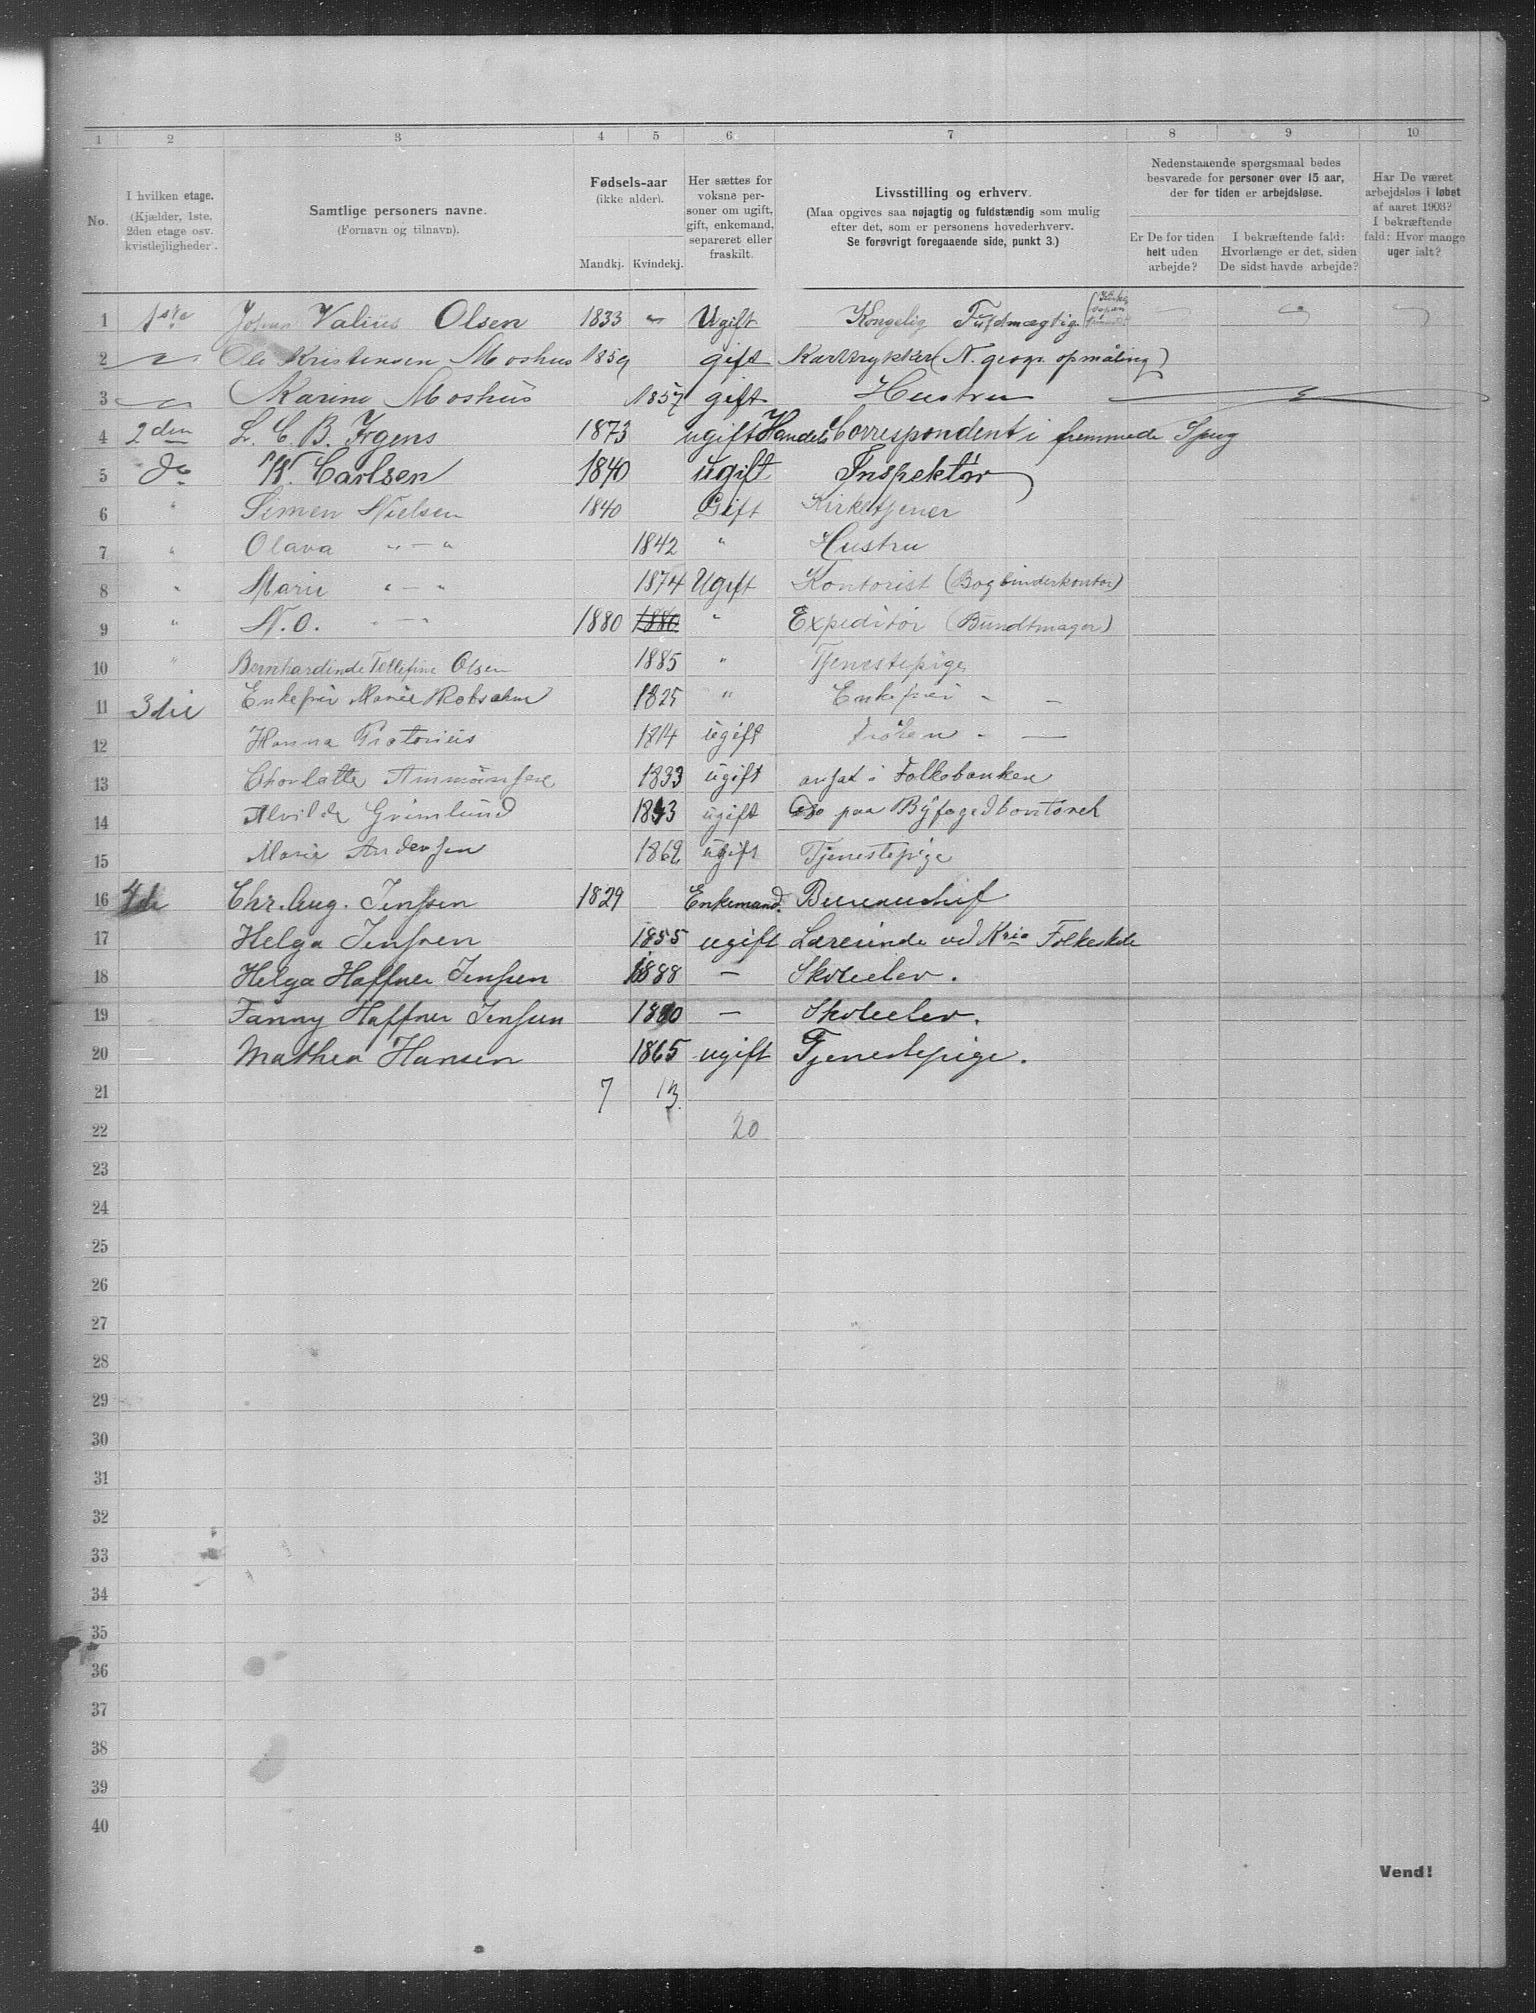 1 2 3 4 5 6 7 8 9 10
No.
I hvilken etage.
(Kjælder, 1ste,
2den etage osv.
kvistlejligheder.
Samtlige personers navne.
(Fornavn og tilnavn).
Fødsels-aar
(ikke alder).
Mandkj. Kvindekj.
Her sættes for
voksne per-
soner om ugift,
gift, enkemand,
separeret eller
fraskilt.
Livsstilling og erhverv.
(Maa opgives saa nøjagtig og fuldstændig som mulig
efter det, som er personens hovederhverv.
Se forøvrigt foregaaende side, punkt 3.)
Nedenstaaende spørgsmaal bedes
besvarede for personer over 15 aar,
der for tiden er arbejdsløse.
Er De for tiden
helt uden
arbejde?
I bekræftende fald:
Hvorlænge er det, siden
De sidst havde arbejde?
Har De været
arbejdsløs i løbet
af aaret 1903?
I bekræftende
fald: Hvor mange
uger ialt?
1 1ste Johan Valius Olsen 1833 " Ugift Kongelig Fuldmægtig
2 " Ole Kristensen Moshus 1859 gift Karttrykker (N. geogr. opmåling)
3 " Karine Moshus 1857 gift Hustru
4 2den L. C. B. Irgens 1873 ugift Handels Correspondent i fremmede Sprog
5 do W. Carlsen 1840 ugift Inspektør
6 " Simen Nielsen 1840 Gift Kirketjener
7 " Olava " — " 1842 " Hustru
8 " Marie " — " 1874 Ugift Kontorist (Bogbinderkontor)
9 " N. O. " — " 1880 1880 " Expeditør (Bundtmager)
10 " Bernhardinde Tellefine Olsen 1885 " Tjenestepige
11 3die Enkefru Marie 1825 " Enkefrue - -
12 Hanna Pretorius 1814 ugift Frøken - —
13 Charlotte 1833 ugift ansat i Folkebanken
14 Alvilde Grimlund 1843 ugift Do paa Byfogedkontoret
15 Marie Andersen 1862 ugift Tjenestepige
16 4de Chr. Aug. Jenssen 1829 Enkemand. Bureauchef
17 Helga Jenssen 1855 ugift Lærerinde ved Kria Folkeskole
18 Helga Haffner Jenssen 1888 — Skoleelev.
19 Fanny Haffner Jenssen 1890 — Skoleelev.
20 Mathea Hansen 1865 ugift Tjenestepige.
21 7 13
22 20
23
24
25
26
27
28
29
30
31
32
33
34
35
36
37
38
39
40
Vend!